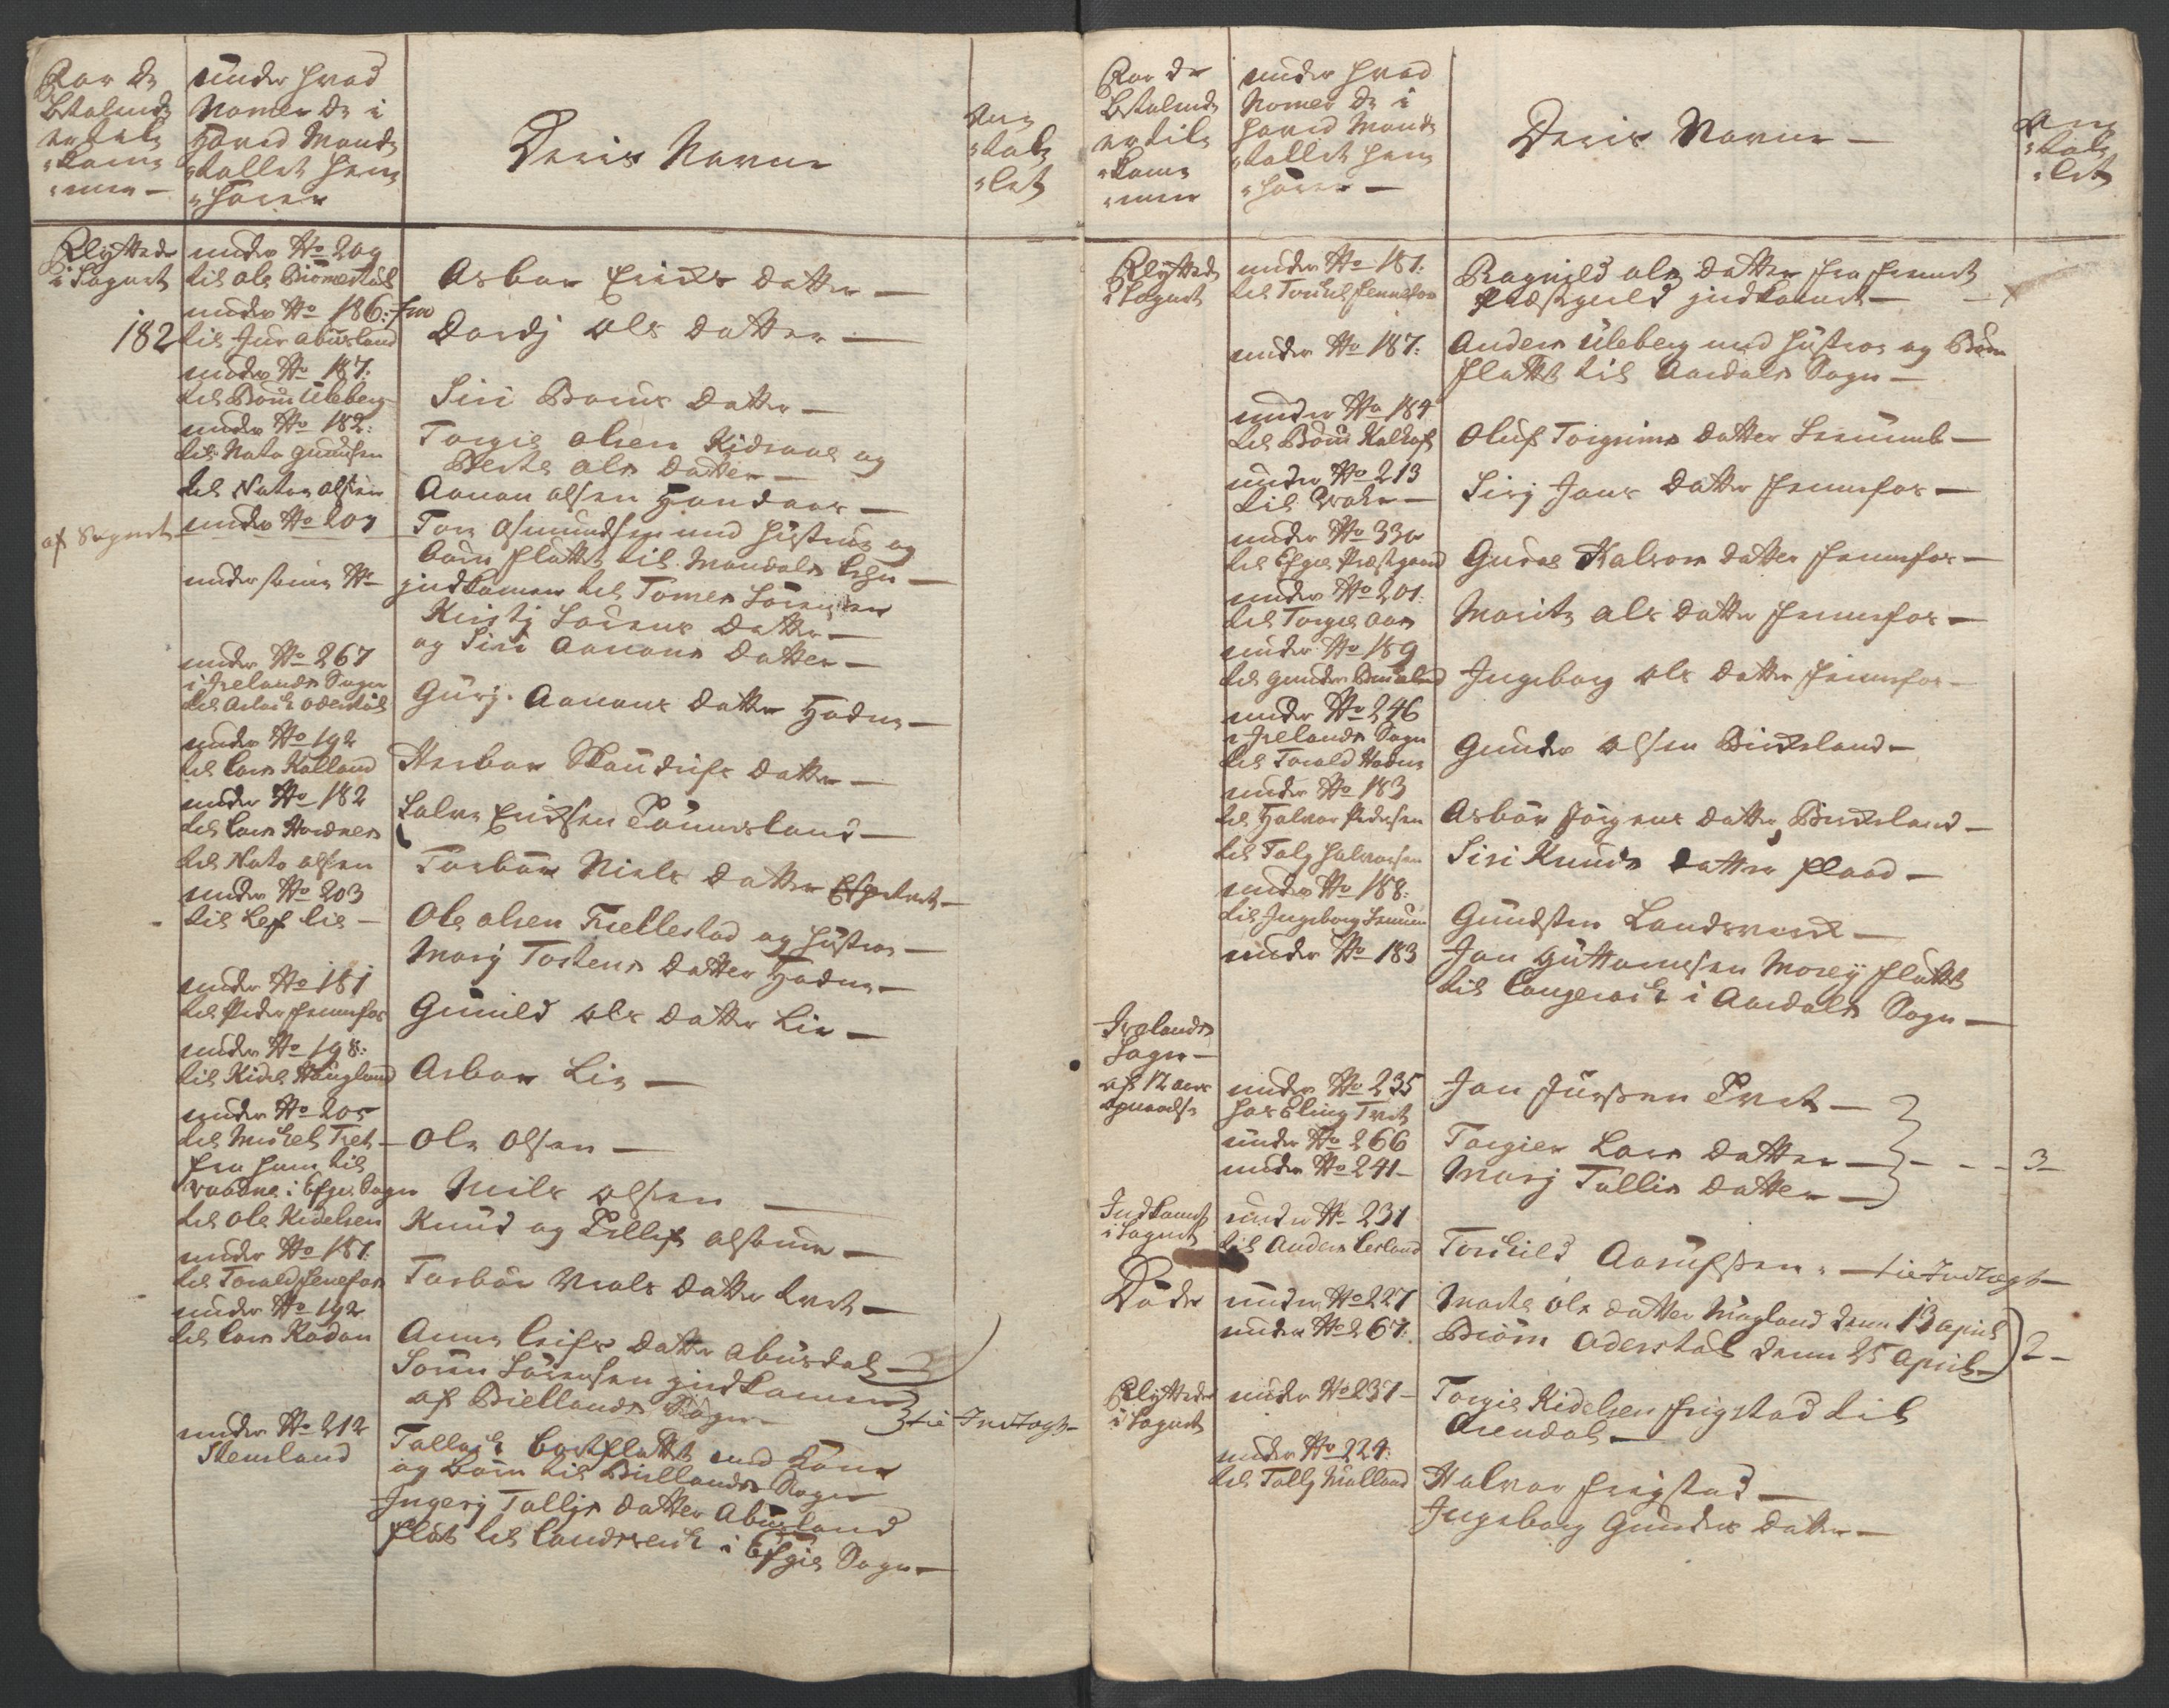 For de
betalende
er tilk
komm
men
under hvad
Nomer de i
Hoved Mands
tallet hen
hører
Deris Navne
An
tal
let
Flyttede
i Sognet
under No 209
til Ole Biomestøl
Asbor Erichs Datter
under No 186: fra
182 til Jur Abusland
Dordj Ols Datter
under No 187:
til Børu Uleberg
Siri Børus Datter
under No 182:
til Nato Gundersen
Torgis Olsen Kidraas og
Berte Ols Datter
til Nato Olsen
Aanon Olsen Handaas
af Sognet
under No 207
Tor Osmundsen med Hustrue og
børn fløttet til Mandals Lehn
under samme No
indkommen til Tomes Sørensen
Kirstj Sørens Datter
og Siri Aanons Datter
under No 267
i Irelands Sogn
til Aslach Oderstøl
Gurj Aanons Datter Hodne
under No 192
til Lars Kalland
Herbor Skaudrifs Datter
under No 182
til Lars Hordnes
Salve Erichsen
til Nato Olsen
Torbor Niels Datter
under No 203
til Lef Lie
Ole Olsen Tiellestad og Hustroe
Marj Tostens Datter Hodne
under No 181
til Peder Fennefos
Gunild Ols Datter Lie
under No 198:
til Kidel Haugland
Asbor Lie
under No 205
til Michel Tvet
Ole Olsen
fra ham til
i Efge Sogn
Niels Olsen
til Ole Kidelsen
Knud og Tellef Olsønner
under No 181:
til Torald Fennefos
Torbør Niels Datter Tvet
under No 192
til Lars Rodan
Anne Leifs Datter Abusdal
Søren Sørensen indkommen
af Biellands Sogn
tie Indtægt
under No 212
Stensland
Tallach fløttet med Kone
og Børn til Biellands Sogn
Ingerj Talljs Datter Abusland
fløt til Landsverch i Efgie Sogn
For de
betalende
er til
komm
men
under hvad
Nomer de i
Hoved Mands
tallet hen
hører
Deris Navne
An
tal
let
Flyttede
i Sognet
under No 181:
til Torkel Fennefos
Ragnild Ols Datter fra Hennest
Præstegield indkomet
under No 187:
Anders Uleberg med Hustroe og Børn
fløttet til Aardals Sogn
under No 184
til Børu Kalhof
Oluf Torgrims Datter Senumb
under No 213
til
Sirj Jons Datter Fennefos
under No 330
til Efgie Præstgaard
Guroe Halvors Datter Fennefos
under No 201:
til Torgis Aas
Marite Ols Datter Fennefos
under No 189
til Gunder Birkeland
Ingeborg Ols Datter Fennefos
under No 246
i Irelands Sogn
til Torald Hodne
Gunder Olsen Birchland
under No 183
til Halvor Pedersen
Asbør Jørgens Datter Birchland
til Talg Halvorsen
Siri Knuds Datter Flaad
under No 188:
til Ingeborg Senum
Gundsten Landsverck
under No 183
Jon Guttormsen Moseij fløttet
til Langerach i Aardals Sogn
Irelands
Sogn
af 12 aars
opvoxelse
under No 235
hos Eling Tvet
Jon Jurssen Tvet
under No 266
Torgier Lars Datter
under No 241
Marj Tallis Datter
3
Indkomet
i Sognet
under No 231
til Anders Lesland
Torkild Aanufssen
tie Indtægt
Døde
under No 227
Marte Ols Datter Mugland denn 13 April
under No 267:
Biørn Oderstøl denn 25 April
2
Flyttede
i Sognet
under No 237
Torgis Kidelsen Frigstad til
Arendal
under No 224:
til Tallj Mølland
Halvor Frigstad
Ingeborg Gunders Datter